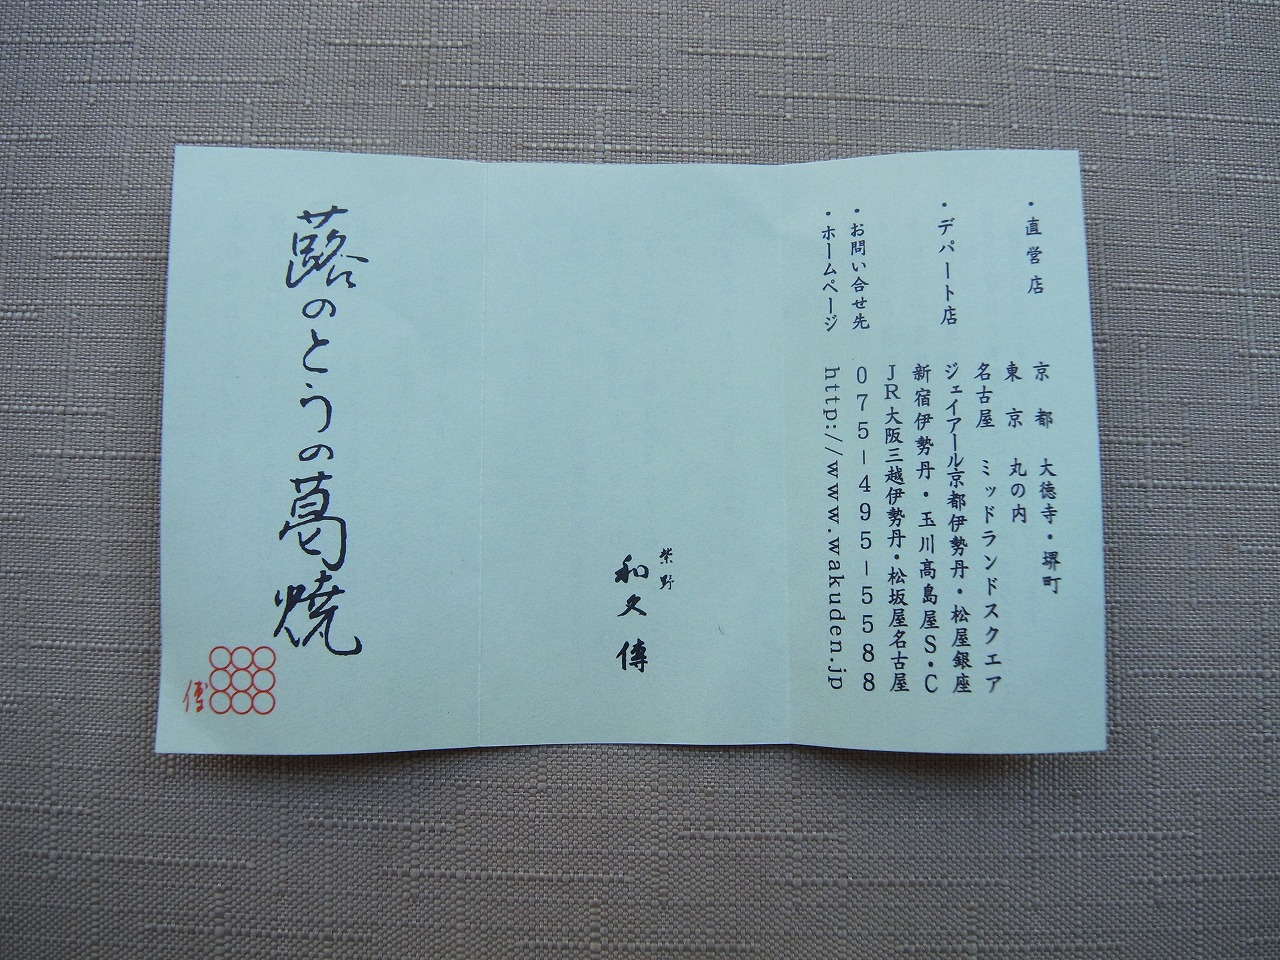 ・直営店 京都 大徳寺・堺町
東京 丸の内
名古屋 ミッドランドスクエア
・デパート店 ジェイアール京都伊勢丹・松屋銀座
新宿伊勢丹・玉川髙島屋S・C
JR大阪三越伊勢丹・松坂屋名古屋
・お問い合せ先 075-495-5588
・ホームページ http://www.wakuden.jp
紫野
和久傳
蕗のとうの葛焼
傳